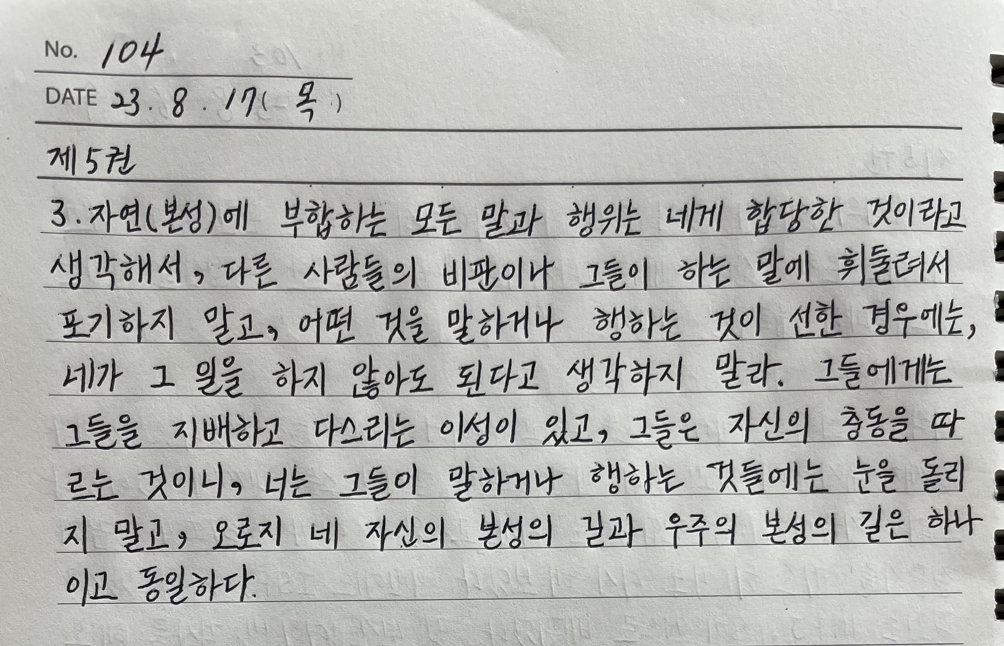 No. 104
DATE 23. 8. 17( 목 )
제5권
3. 자연(본성)에 부합하는 모든 말과 행위는 네게 합당한 것이라고
생각해서, 다른 사람들의 비판이나 그들이 하는 말에 휘둘려서
포기하지 말고, 어떤 것을 말하거나 행하는 것이 선한 경우에는,
네가 그 일을 하지 않아도 된다고 생각하지 말라. 그들에게는
그들을 지배하고 다스리는 이성이 있고, 그들은 자신의 충동을 따
르는 것이니, 너는 그들이 말하거나 행하는 것들에는 눈을 돌리
지 말고, 오로지 네 자신의 본성의 길과 우주의 본성의 길은 하나
이고 동일하다.